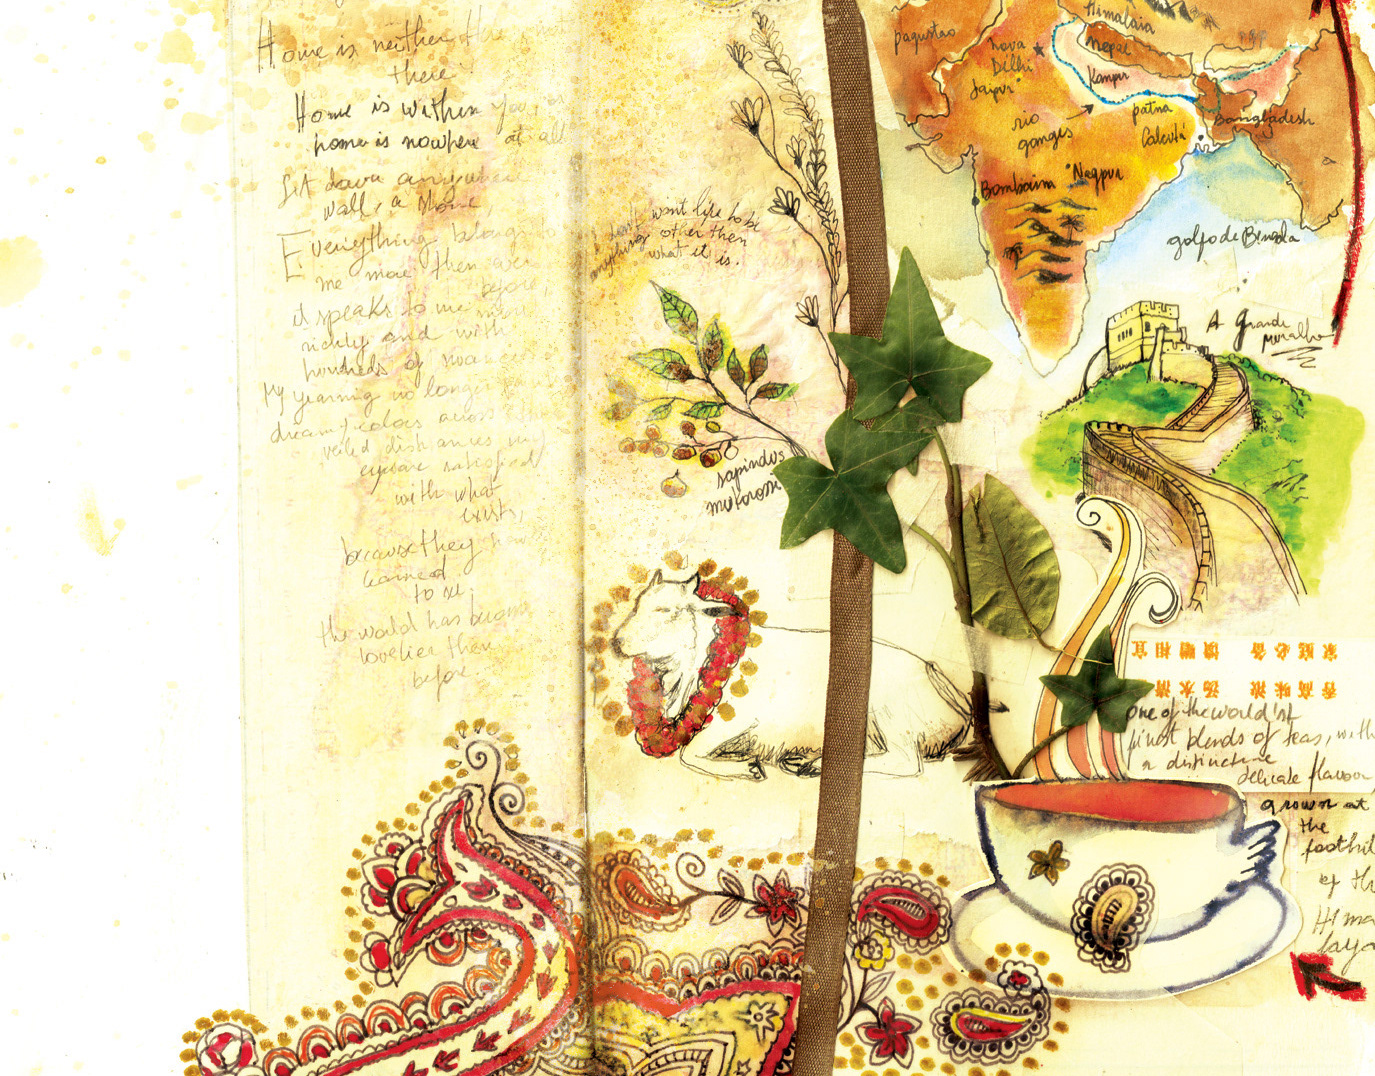 Home is neither
there
Home is within you, or
home is nowhere at all
Sit down anywhere
wall, a stone,
Everything belongs to
me more then ever
before,
it speaks to me more
richly and with
hundreds of nuances
My yearning no longer
dream/colors across
veiled distances my
eyes are satisfied
with what
exists,
because they
learned
to see.
the world has become
lovelier then
before.
want like to be
anything other then
what it is.
sapindus
mukorossi
paquistao
Himalaia
Nepal
nova
Delhi
Jaipur
Kanpur
rio
ganges
patna
Calcutá
Bangladesh
Bombaim
Nagpur
golfo de Bengala
A Grande
muralha
家庭必备 馈赠相宜
香高味浓 汤水清
one of the world'st
finest blends of teas, with
a distinctive
delicate flavour,
grown at
the
foothil
of the
Himalaya